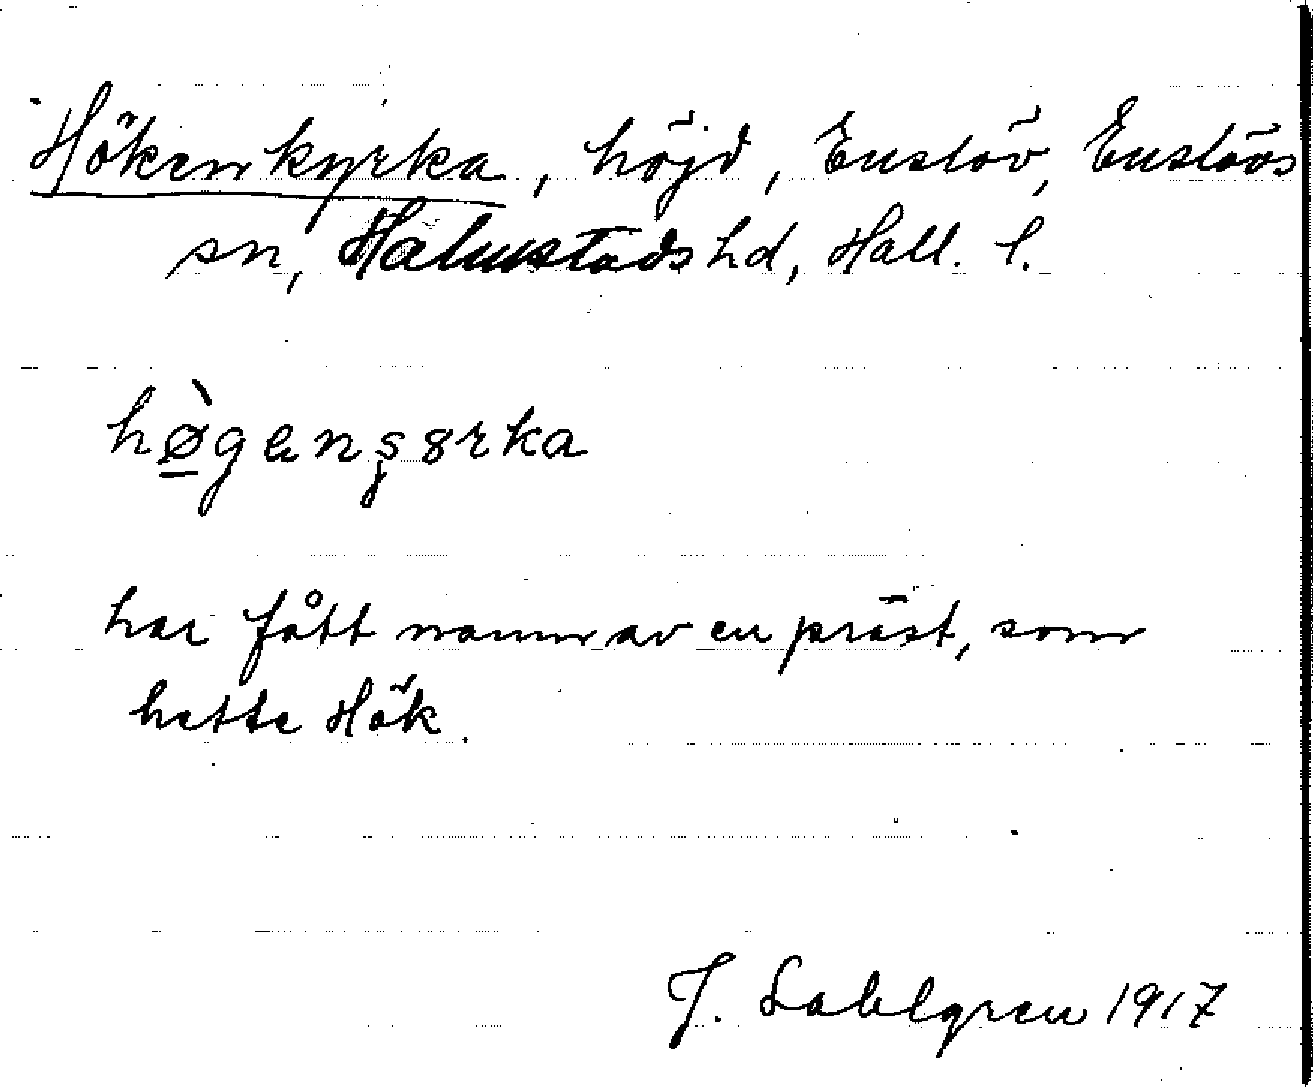 Höken kyrka, höjd, Enslöv, Enslövs
sn, Halmstads hd, Hall. l.
hø̲̀genşɤrka
har fått namn av en präst, som
hette Hök.
J. Sahlgren 1917